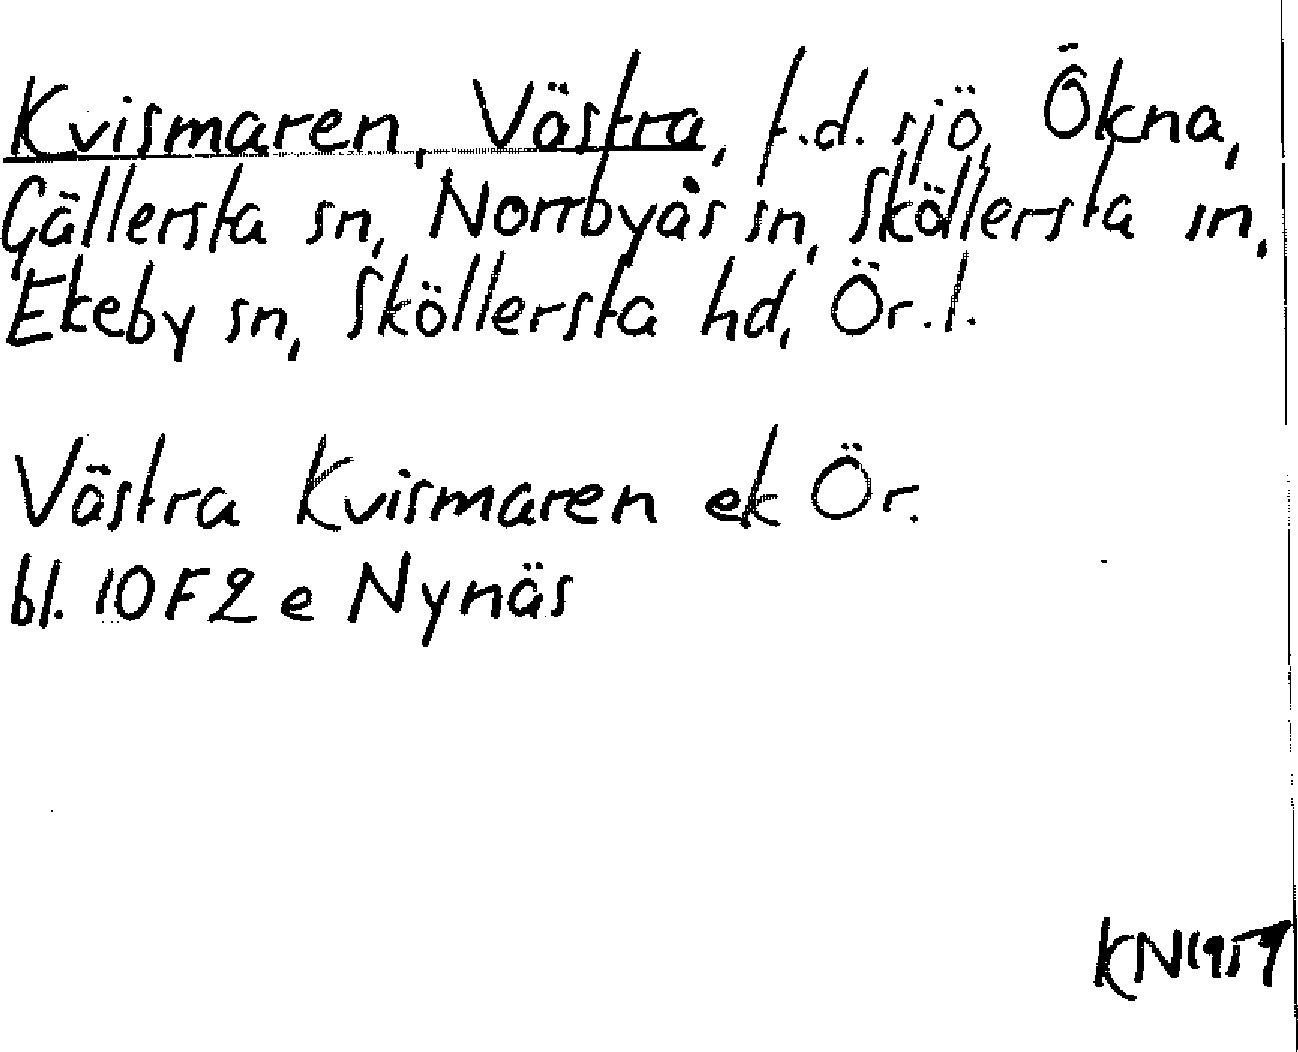 Kvismaren, Västra, f.d. sjö, Ökna,
Gällersta sn, Norrbyås sn, Sköllersta sn,
Ekeby sn, Sköllersta hd, Ör. l.
Västra Kvismaren ek Ör.
bl. 10F2e Nynäs
KN1959